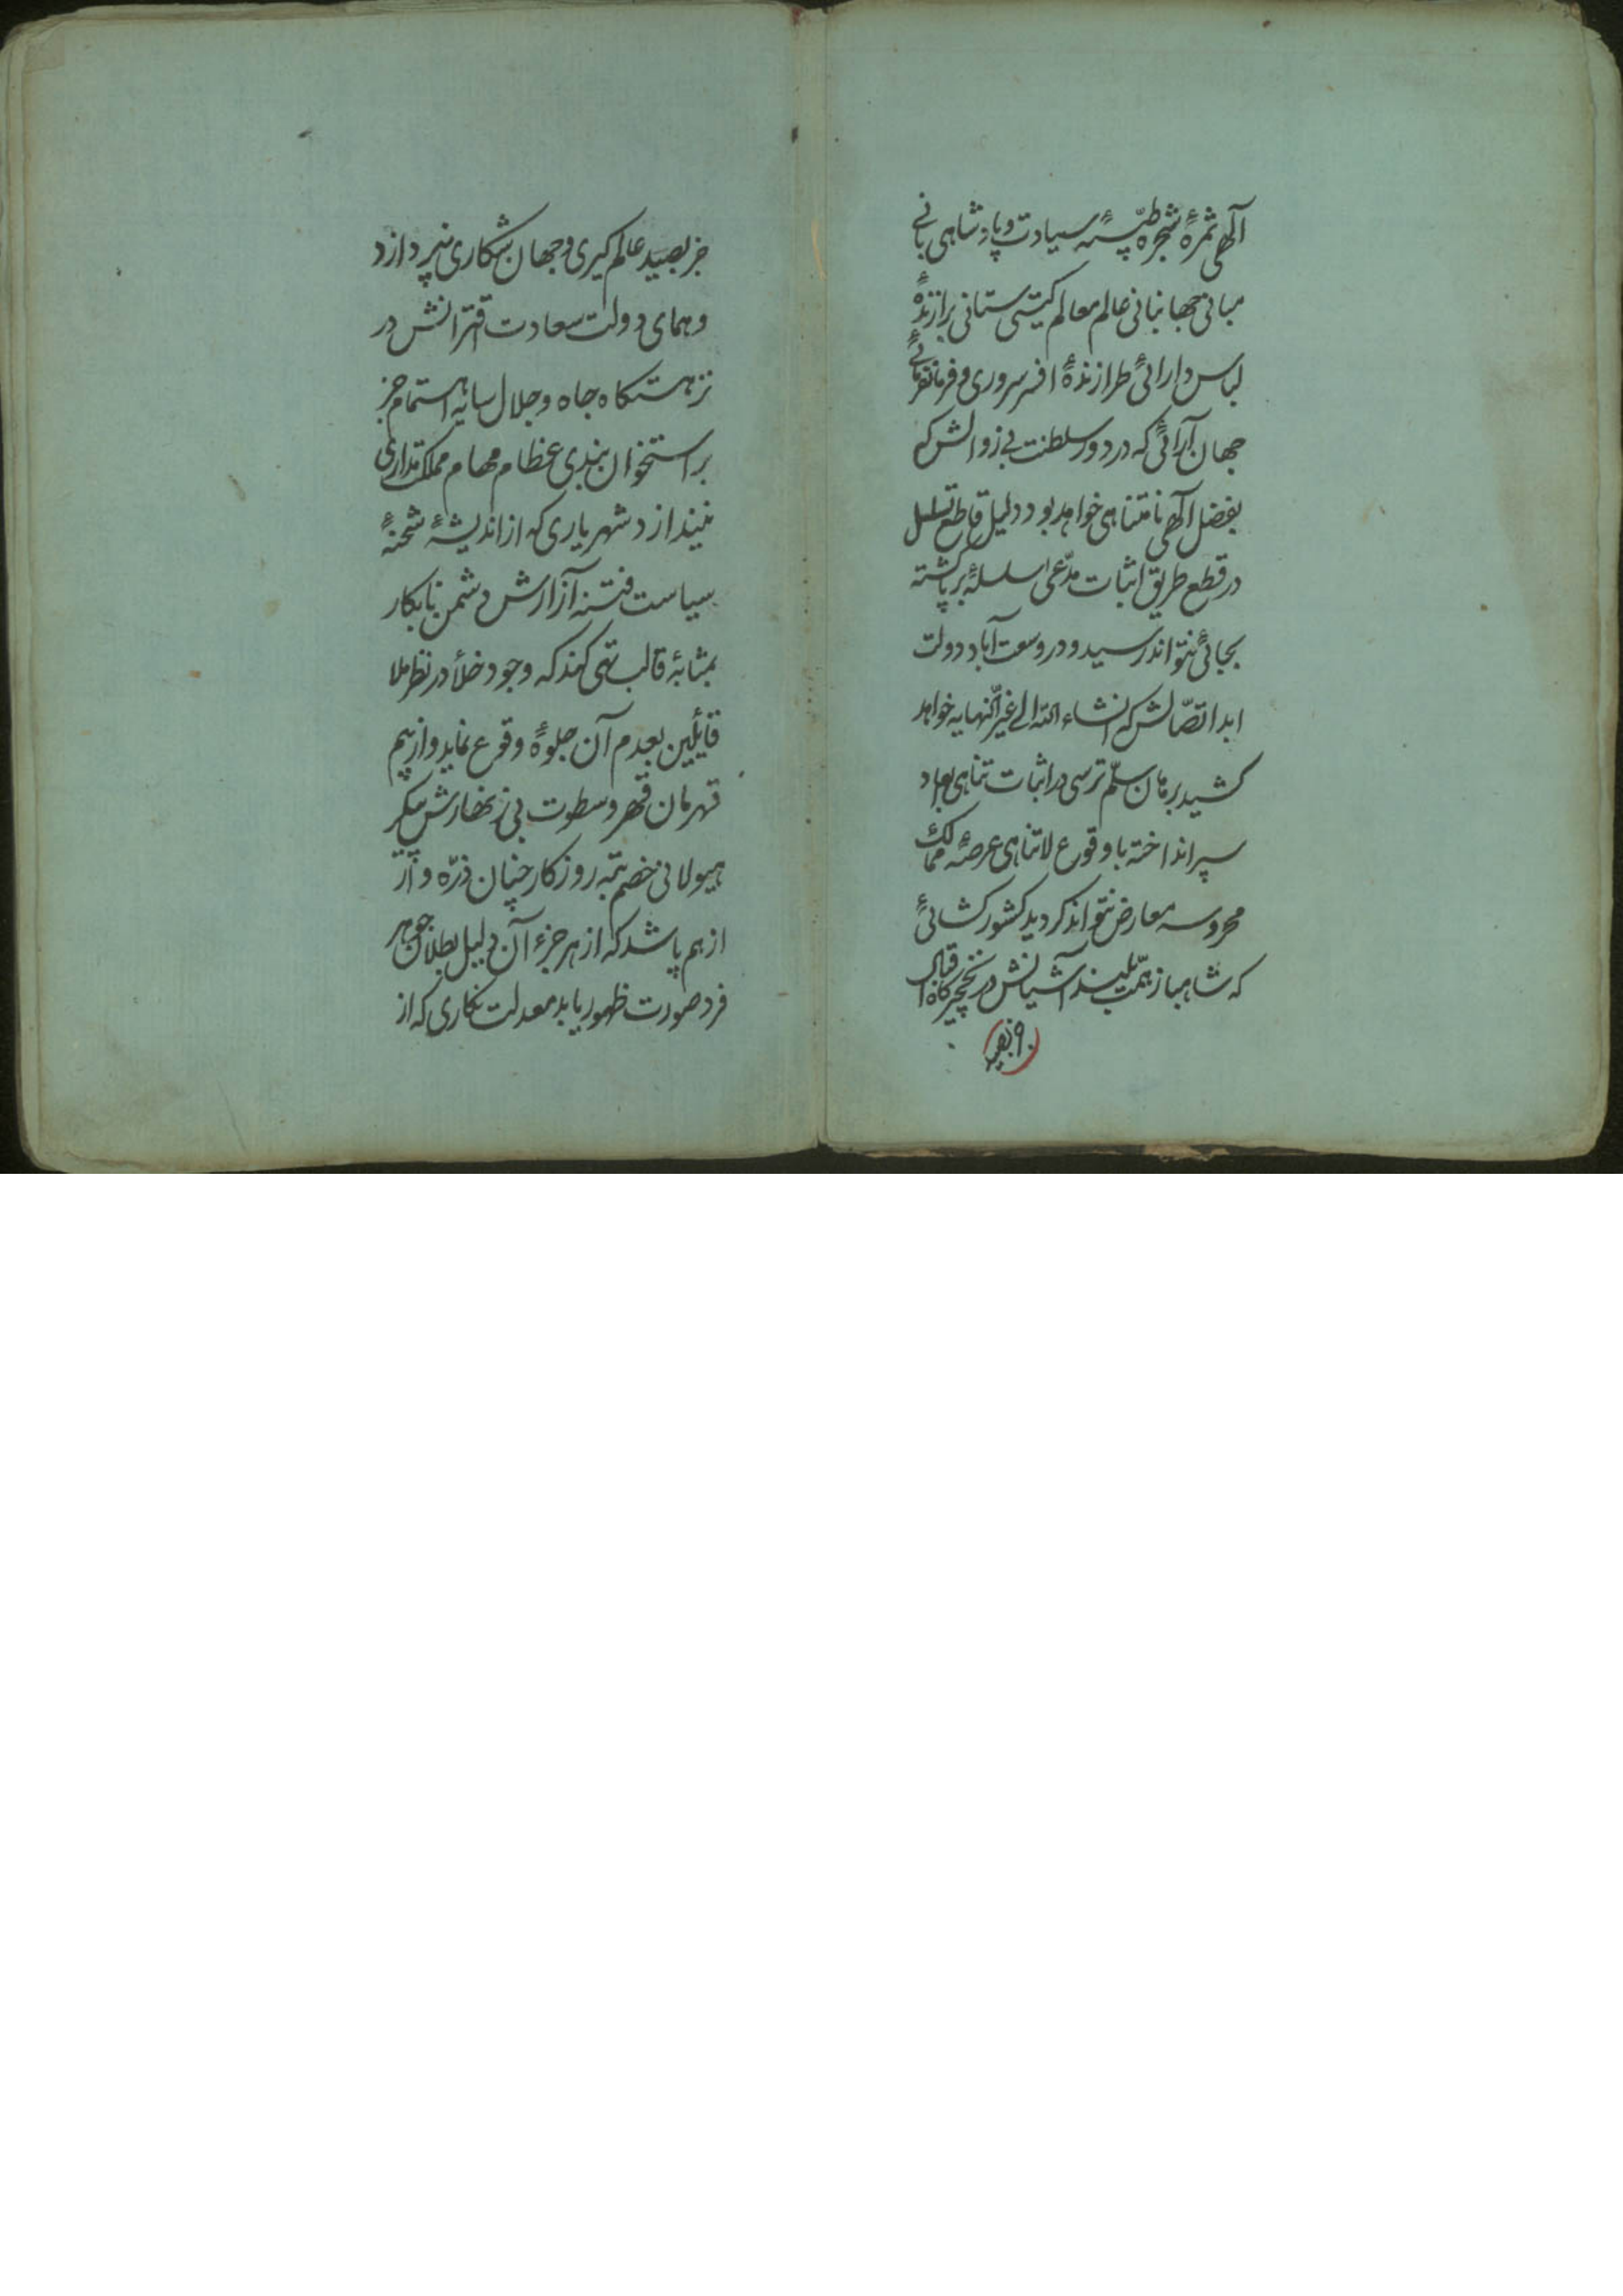 الهی ثمرهٔ شجرهٔ طیّبهٔ سیادت و پادشاهی بانی
مبانی جهانبانی عالم معالم کیتی ستانی برازندهٔ
لباس دارائی طرازندهٔ افسر سروری و فرمانفرمائی
جهان آرائی که در دور سلطنت بی زوالش که
بفضل الهی نامتناهی خواهد بود دلیل قاطع تسلسل
در قطع طریق اثبات مدّعی سلسلهٔ برپا گشته
بجائی نتواند رسید و در وسعت آباد دولت
ابد اتصّالش که انشاء الله الی غیر النّهایه خواهد
کشید برهان سلّم ترسی در اثبات تناهی ابعاد
سپر انداخته با وقوع لاتناهی عرصهٔ ممالک
محروسه معارض نتواند کردید کشورکشائی
که شاهباز همّت بلند آشیانش در نخچیرکاه اقبال
جز بصید عالم کیری و جهان شکاری نپردازد
و همای دولت سعادت اقترانش در
نزهتکاه جاه و جلال سایه اهتمام جز
بر استخوان بندی عظام مهام مملکتداری
نیندازد شهریاری که از اندیشهٔ شحنهٔ
سیاست فتنه آزارش دشمن نابکار
بمثابهٔ قالب تهی کند که وجود خلأ در نظر ملا
قایلین بعدم آن جلوهٔ وقوع نماید و از بیم
قهرمان قهر و سطوت بی زنهارش پیکر
هیولانی خصم تبه روزکار چنان ذرّه وار
از هم پاشد که از هر جزء آن دلیل بطلان جوهر
فرد صورت ظهور یابد معدلت نکاری که از